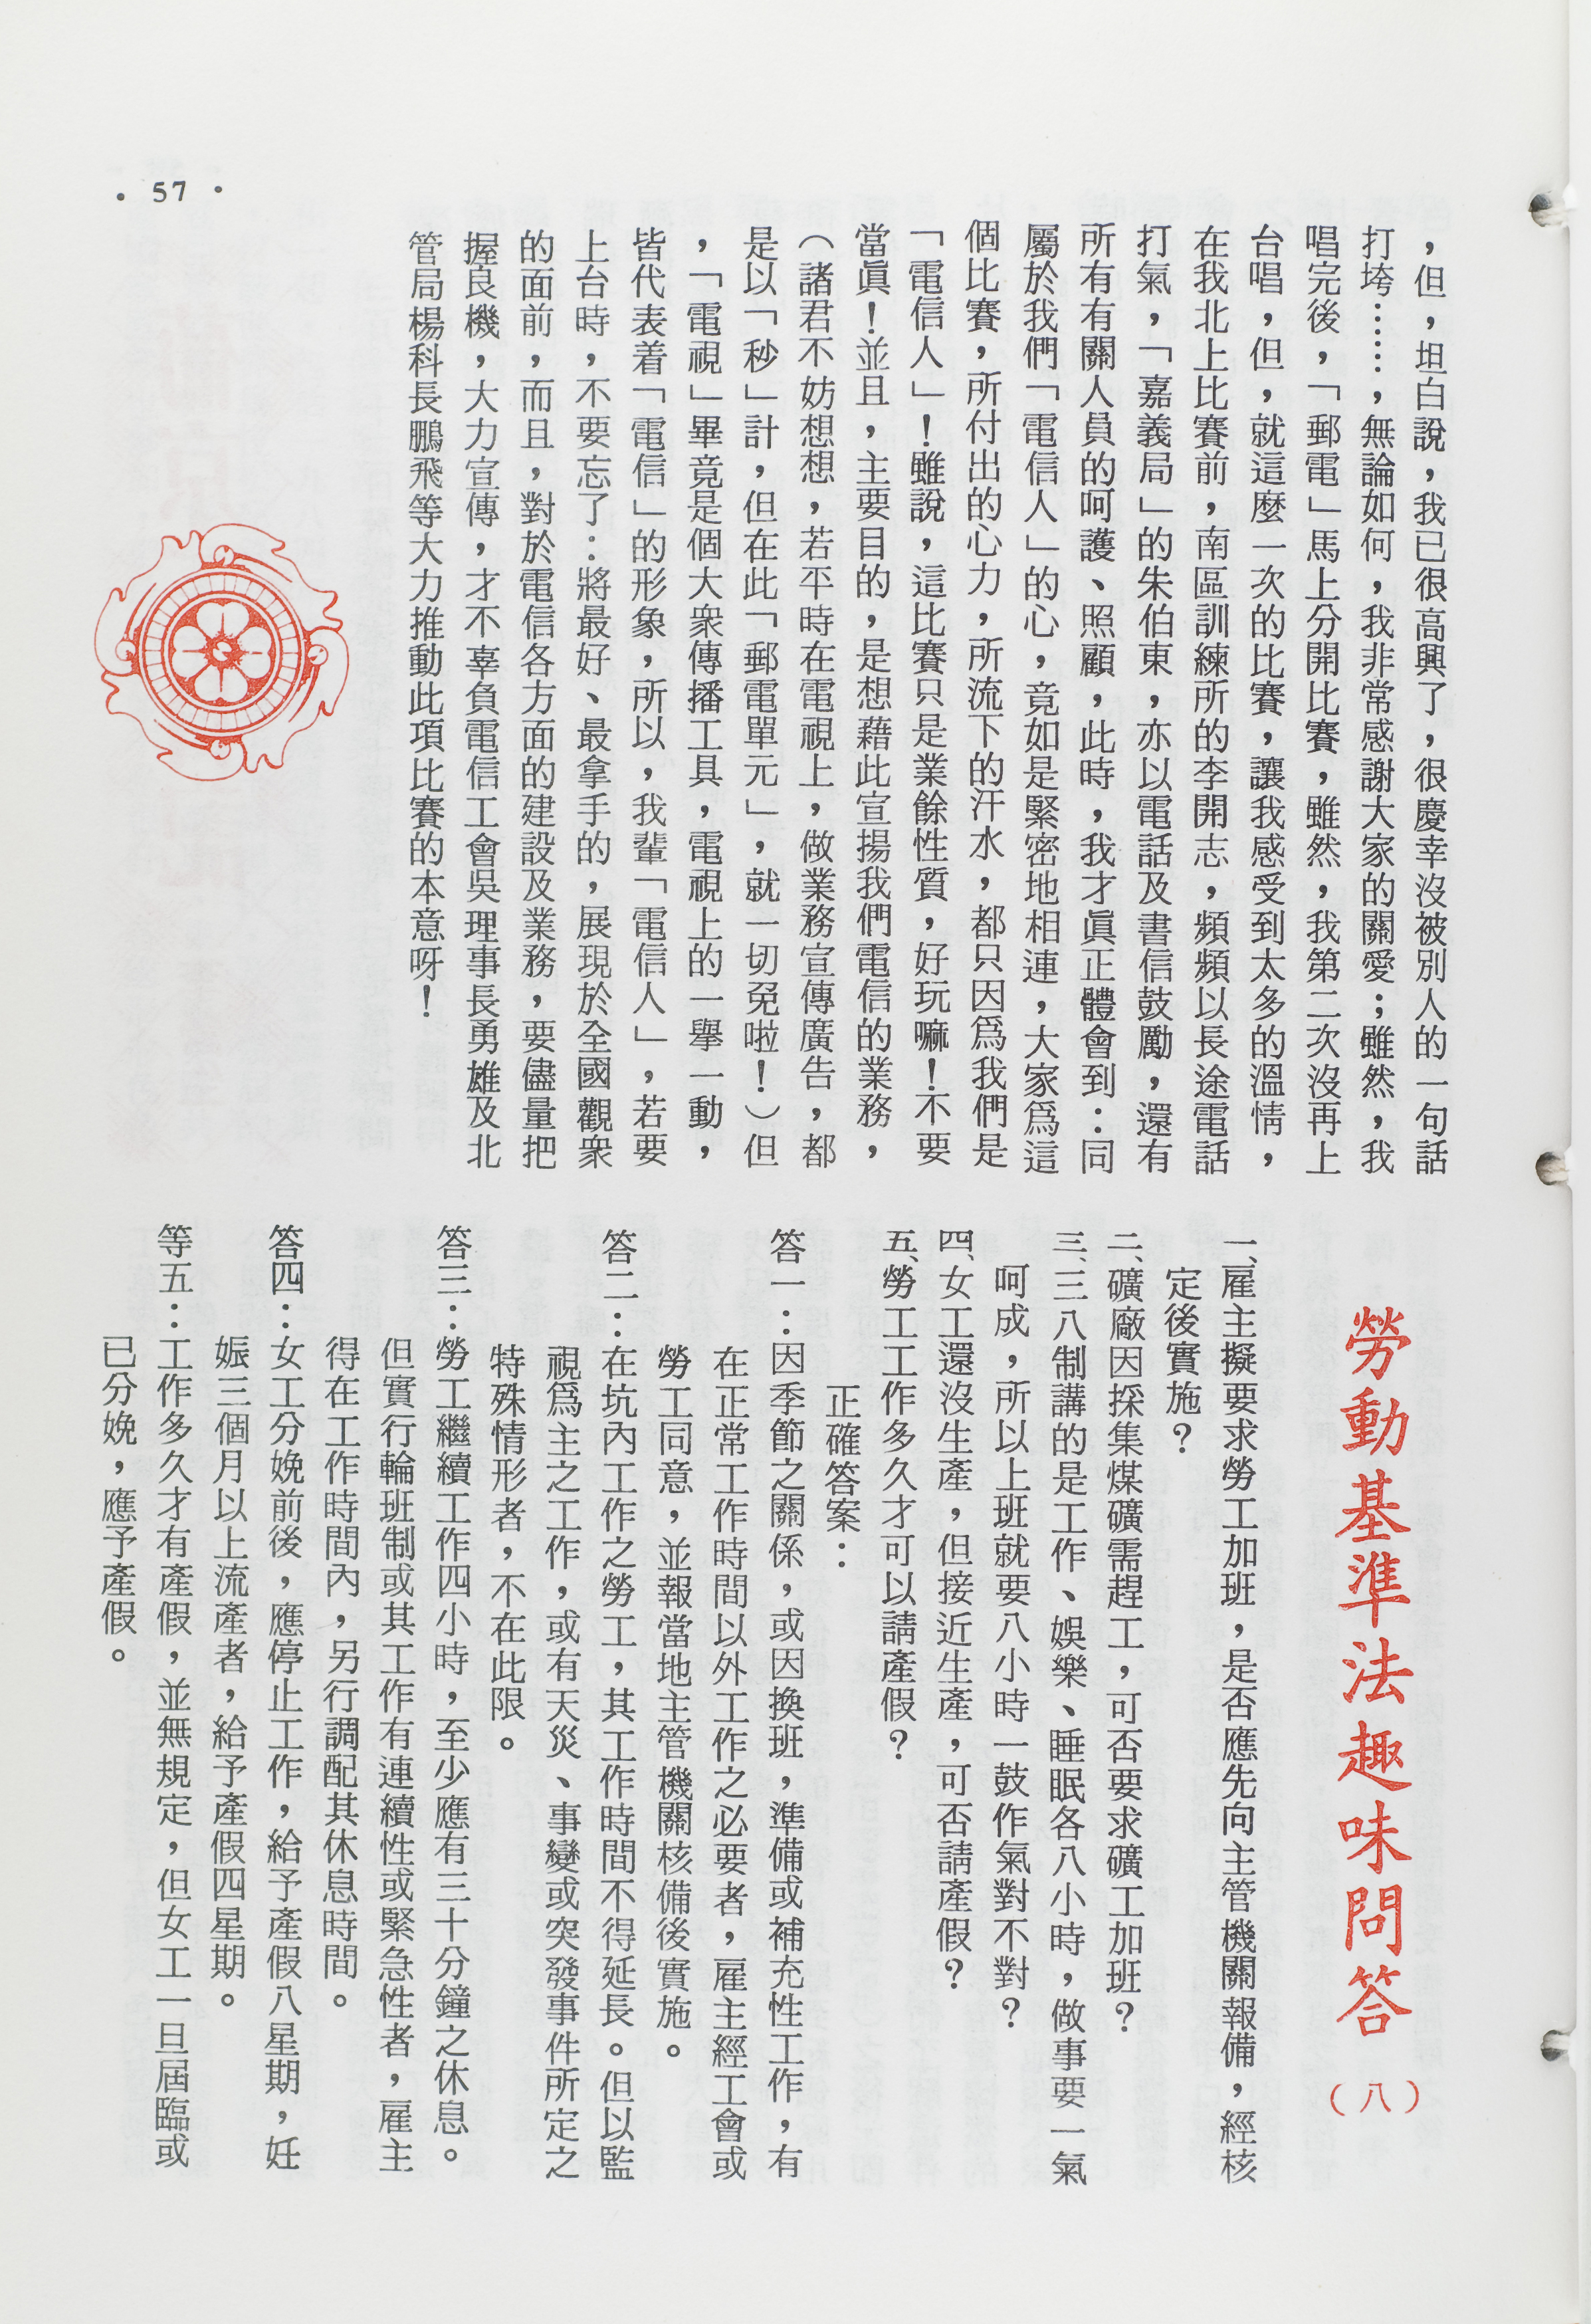 ，但，坦白說，我已很高興了，很慶幸沒被別人的一句話
打垮……，無論如何，我非常感謝大家的關愛；雖然，我
唱完後，「郵電」馬上分開比賽，雖然，我第二次沒再上
台唱，但，就這麼一次的比賽，讓我感受到太多的溫情，
在我北上比賽前，南區訓練所的李開志，頻頻以長途電話
打氣，「嘉義局」的朱伯東，亦以電話及書信鼓勵，還有
所有有關人員的呵護、照顧，此時，我才眞正體會到：同
屬於我們「電信人」的心，竟如是緊密地相連，大家爲這
個比賽，所付出的心力，所流下的汗水，都只因爲我們是
「電信人」！雖說，這比賽只是業餘性質，好玩嘛！不要
當眞！並且，主要目的，是想藉此宣揚我們電信的業務，
（諸君不妨想想，若平時在電視上，做業務宣傳廣告，都
是以「秒」計，但在此「郵電單元」，就一切免啦！）但
，「電視」畢竟是個大衆傳播工具，電視上的一舉一動，
皆代表着「電信」的形象，所以，我輩「電信人」，若要
上台時，不要忘了：將最好、最拿手的，展現於全國觀衆
的面前，而且，對於電信各方面的建設及業務，要儘量把
握良機，大力宣傳，才不辜負電信工會吳理事長勇雄及北
管局楊科長鵬飛等大力推動此項比賽的本意呀！
勞動基準法趣味問答（八）
一、雇主擬要求勞工加班，是否應先向主管機關報備，經核
定後實施？
二、礦廠因採集煤礦需趕工，可否要求礦工加班？
三、三八制講的是工作、娛樂、睡眠各八小時，做事要一氣
呵成，所以上班就要八小時一鼓作氣對不對？
四、女工還沒生產，但接近生產，可否請產假？
五、勞工工作多久才可以請產假？
正確答案：
答一：因季節之關係，或因換班，準備或補充性工作，有
在正常工作時間以外工作之必要者，雇主經工會或
勞工同意，並報當地主管機關核備後實施。
答二：在坑內工作之勞工，其工作時間不得延長。但以監
視爲主之工作，或有天災、事變或突發事件所定之
特殊情形者，不在此限。
答三：勞工繼續工作四小時，至少應有三十分鐘之休息。
但實行輪班制或其工作有連續性或緊急性者，雇主
得在工作時間內，另行調配其休息時間。
答四：女工分娩前後，應停止工作，給予產假八星期，妊
娠三個月以上流產者，給予產假四星期。
等五：工作多久才有產假，並無規定，但女工一旦屆臨或
已分娩，應予產假。
• 57 •